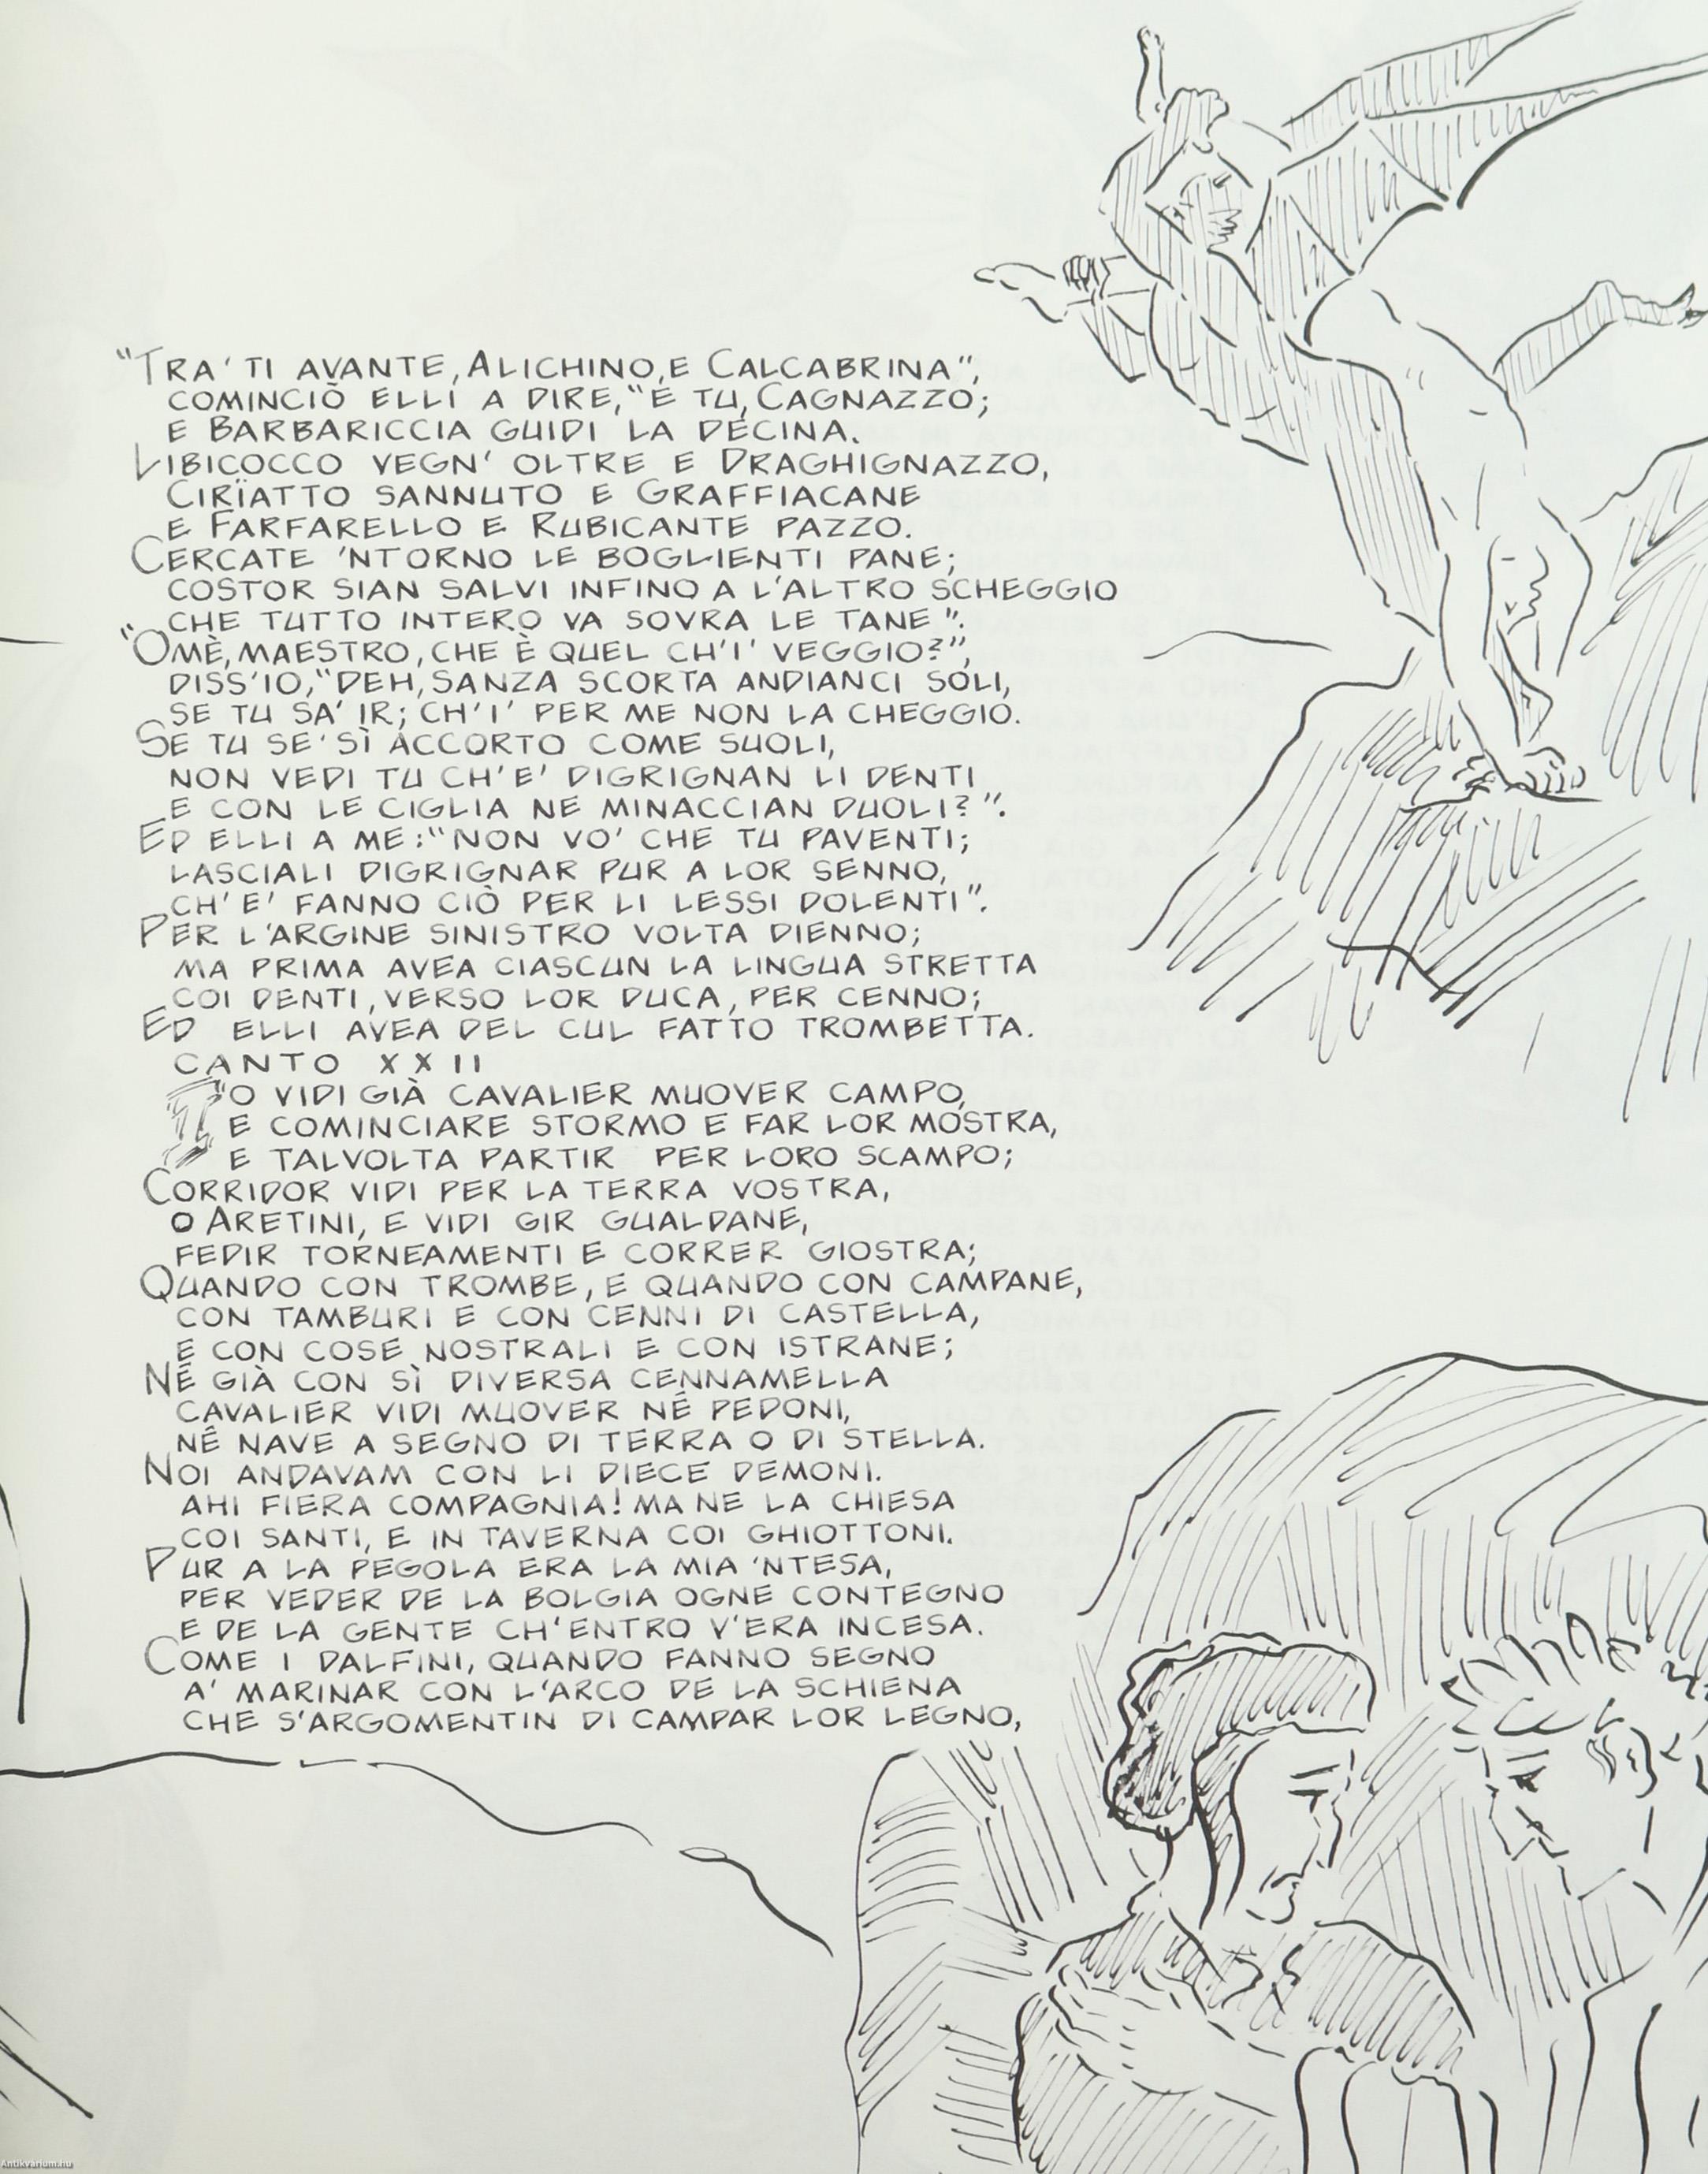 "TRA' TI AVANTE, ALICHINO, E CALCABRINA",
COMINCIÒ ELLI A DIRE, "E TU, CAGNAZZO;
E BARBARICCIA GUIDI LA DECINA.
LIBICOCCO VEGN' OLTRE E DRAGHIGNAZZO,
CIRÏATTO SANNUTO E GRAFFIACANE
E FARFARELLO E RUBICANTE PAZZO.
CERCATE 'NTORNO LE BOGLIENTI PANE;
COSTOR SIAN SALVI INFINO A L'ALTRO SCHEGGIO
CHE TUTTO INTERO VA SOVRA LE TANE".
"OMÈ, MAESTRO, CHE È QUEL CH'I' VEGGIO?",
DISS'IO, "DEH, SANZA SCORTA ANDIANCI SOLI,
SE TU SA' IR; CH'I' PER ME NON LA CHEGGIO.
SE TU SE' SÌ ACCORTO COME SUOLI,
NON VEDI TU CH'E' DIGRIGNAN LI DENTI
E CON LE CIGLIA NE MINACCIAN DUOLI?".
ED ELLI A ME: "NON VO' CHE TU PAVENTI;
LASCIALI DIGRIGNAR PUR A LOR SENNO,
CH'E' FANNO CIÒ PER LI LESSI DOLENTI".
PER L'ARGINE SINISTRO VOLTA DIENNO;
MA PRIMA AVEA CIASCUN LA LINGUA STRETTA
COI DENTI, VERSO LOR DUCA, PER CENNO;
ED ELLI AVEA DEL CUL FATTO TROMBETTA.
CANTO XXII
IO VIDI GIÀ CAVALIER MUOVER CAMPO,
E COMINCIARE STORMO E FAR LOR MOSTRA,
E TALVOLTA PARTIR PER LORO SCAMPO;
CORRIDOR VIDI PER LA TERRA VOSTRA,
O ARETINI, E VIDI GIR GUALDANE,
FEDIR TORNEAMENTI E CORRER GIOSTRA;
QUANDO CON TROMBE, E QUANDO CON CAMPANE,
CON TAMBURI E CON CENNI DI CASTELLA,
E CON COSE NOSTRALI E CON ISTRANE;
NÉ GIÀ CON SÌ DIVERSA CENNAMELLA
CAVALIER VIDI MUOVER NÉ PEDONI,
NÉ NAVE A SEGNO DI TERRA O DI STELLA.
NOI ANDAVAM CON LI DIECE DEMONI.
AHI FIERA COMPAGNIA! MA NE LA CHIESA
COI SANTI, E IN TAVERNA COI GHIOTTONI.
PUR A LA PEGOLA ERA LA MIA 'NTESA,
PER VEDER DE LA BOLGIA OGNE CONTEGNO
E DE LA GENTE CH'ENTRO V'ERA INCESA.
COME I DALFINI, QUANDO FANNO SEGNO
A' MARINAR CON L'ARCO DE LA SCHIENA
CHE S'ARGOMENTIN DI CAMPAR LOR LEGNO,
Antikvarium.hu